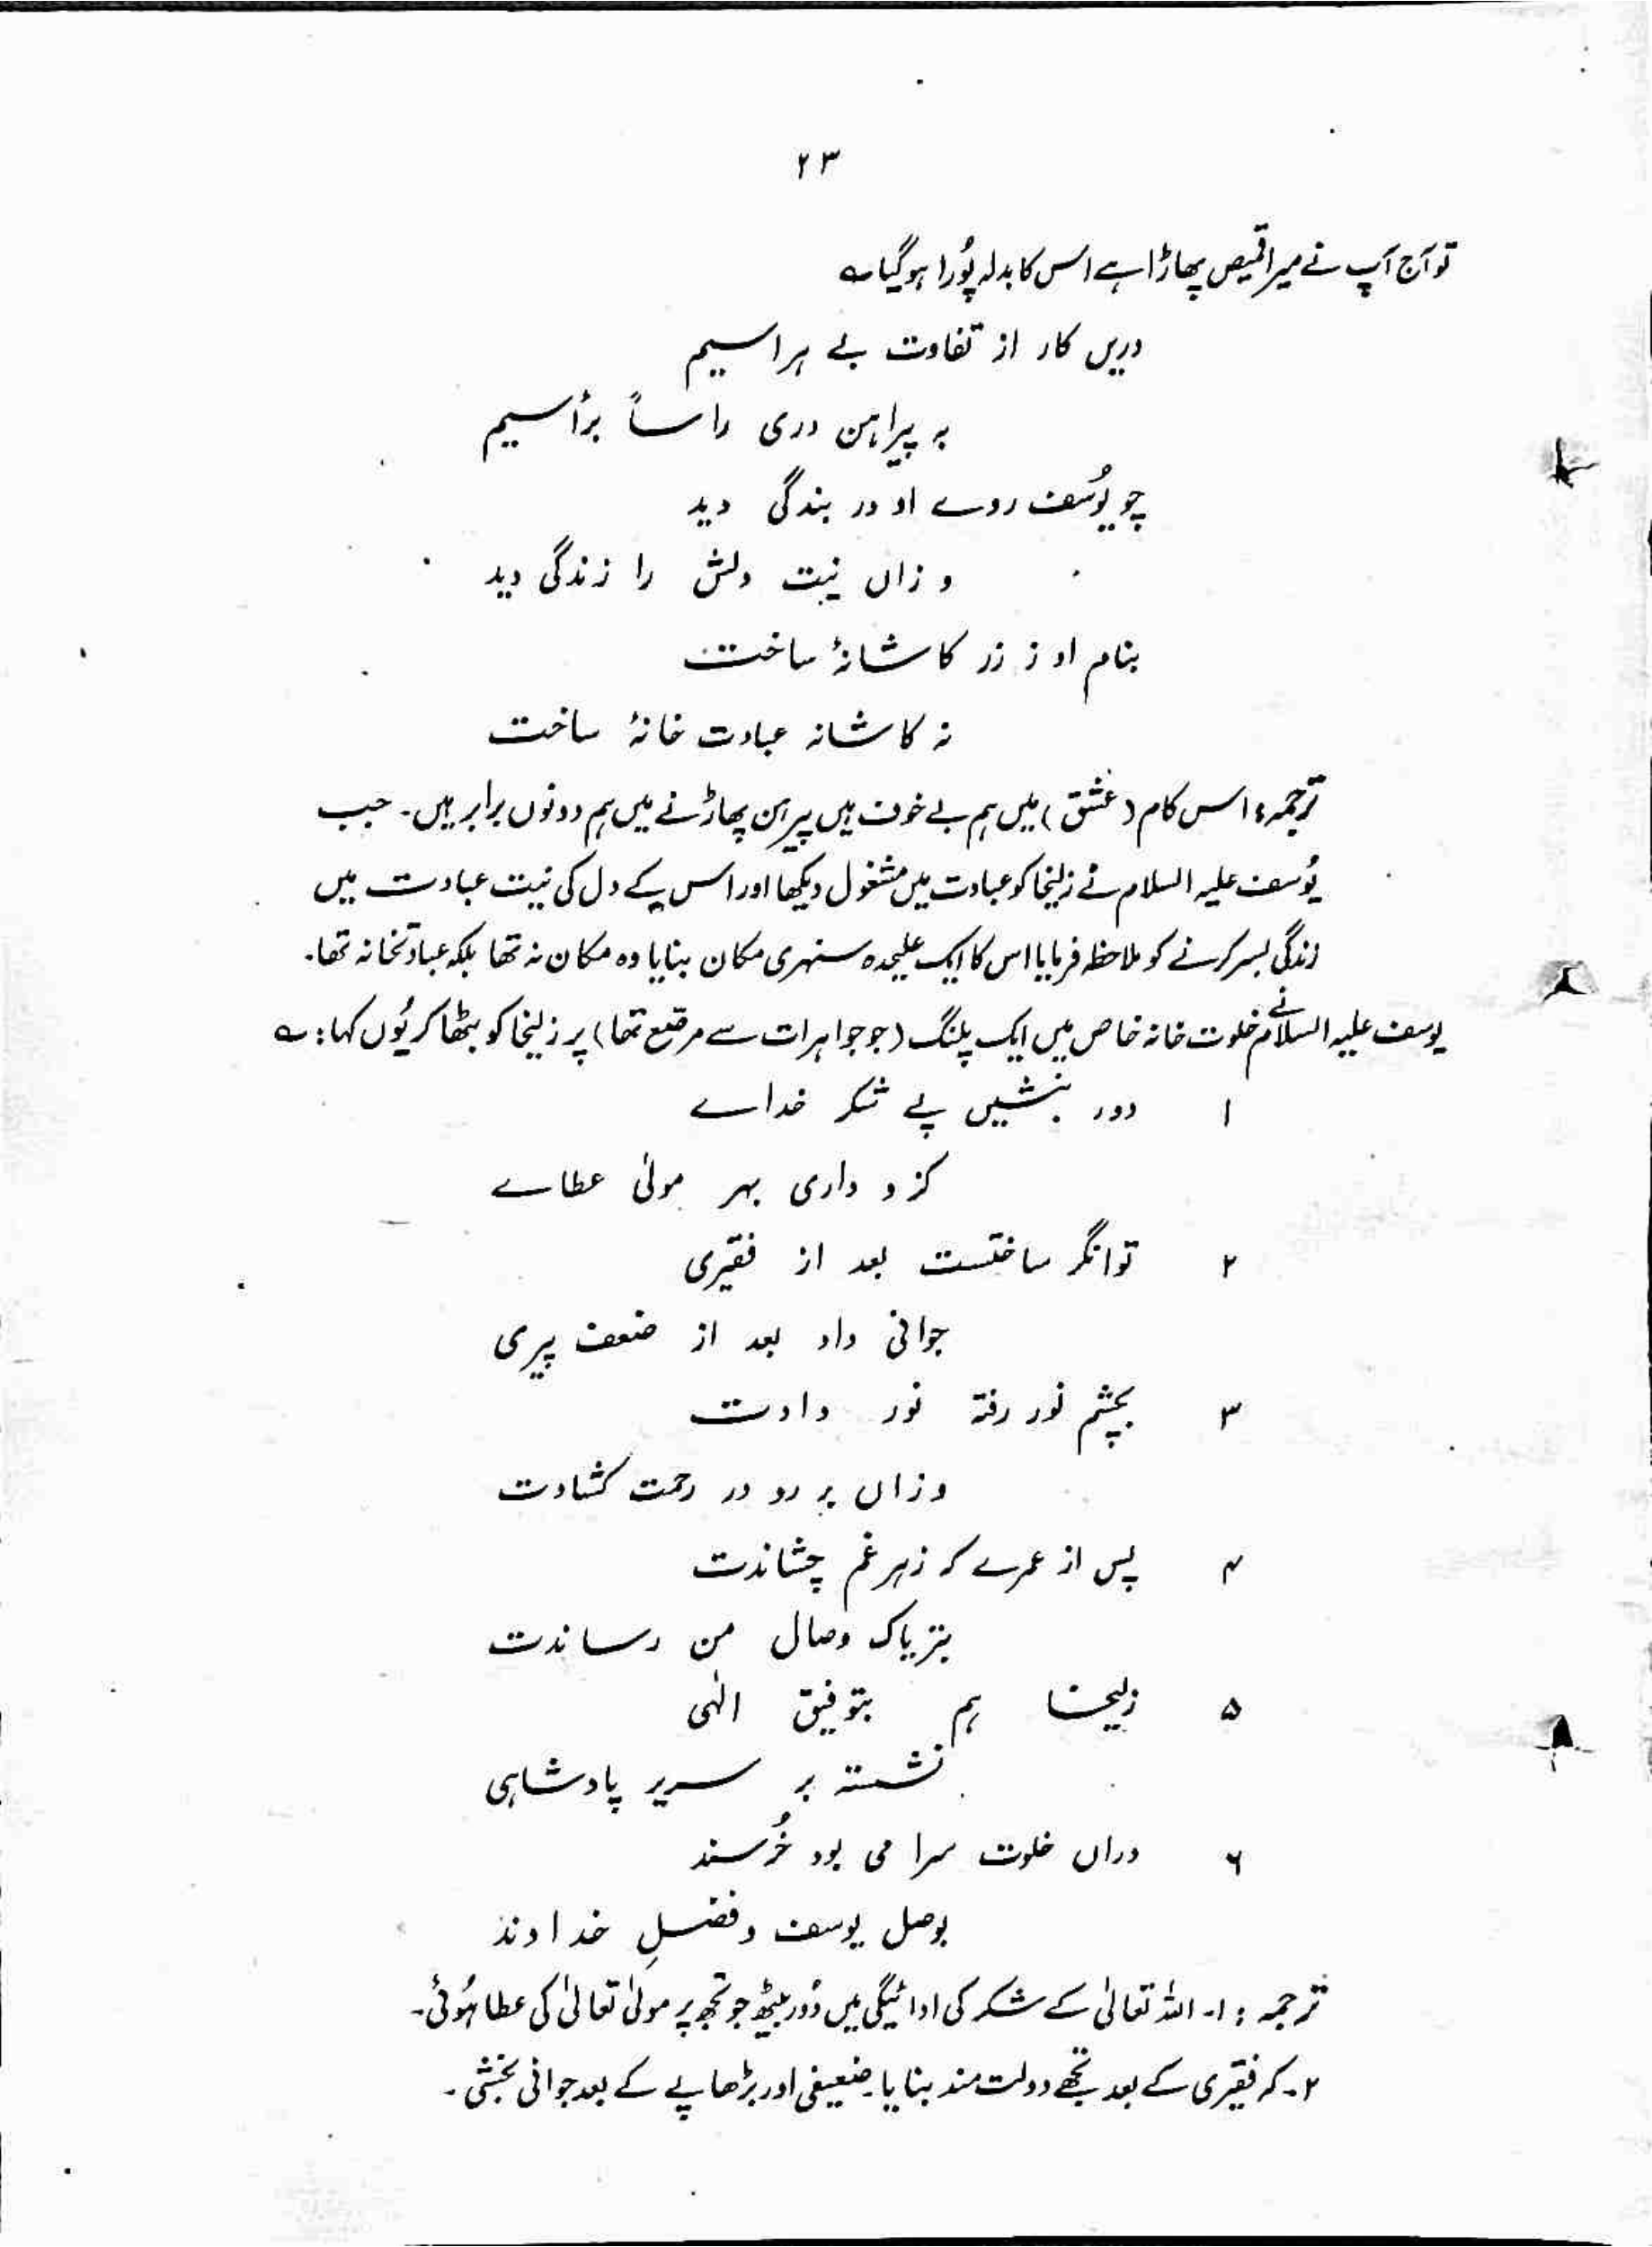 ۲۳
تو آج آپ نے میرا قمیص پھاڑا ہے اس کا بدلہ پُورا ہو گیا ؎
دریں کار از تفاوت بے ہراسیم
بہ پیراہن دری راساً برأسیم
چو یُوسف روے او در بندگی دید
و زاں نیت دلش را زندگی دید
بنام او ز زر کاشانۂ ساخت
نہ کاشانہ عبادت خانۂ ساخت
ترجمہ: اس کام (عشق) میں ہم بے خوف ہیں پیرہن پھاڑنے میں ہم دونوں برابر ہیں۔ جب
یُوسف علیہ السلام نے زلیخا کو عبادت میں مشغول دیکھا اور اس کے دل کی نیت عبادت میں
زندگی بسر کرنے کو ملاحظہ فرمایا اس کا ایک علیحدہ سنہری مکان بنایا وہ مکان نہ تھا بلکہ عبادتخانہ تھا۔
یوسف علیہ السلام نے خلوت خانہ خاص میں ایک پلنگ (جو جواہرات سے مرقع تھا) پر زلیخا کو بٹھا کر یُوں کہا: ؎
۱ دور بنشیں پے شکر خداے
کز و داری بہر مولیٰ عطاے
۲ توانگر ساختست بعد از فقیری
جوانی داد بعد از ضعف پیری
۳ بچشم نور رفتہ نور دادت
وزاں بر رو در رحمت کشادت
۴ پس از عمرے کہ زہر غم چشاندت
بتریاک وصال من رساندت
۵ زلیخا ہم بتوفیق الٰہی
نشستہ بر سریر پادشاہی
۶ دراں خلوت سرا می بود خُرسند
بوصل یوسف و فضلِ خداوند
ترجمہ: ۱۔ اللہ تعالیٰ کے شکر کی ادائیگی میں دُور بیٹھ جو تجھ پر مولیٰ تعالیٰ کی عطا ہُوئی۔
۲۔ کہ فقیری کے بعد تجھے دولت مند بنایا۔ ضعیفی اور بڑھاپے کے بعد جوانی بخشی۔